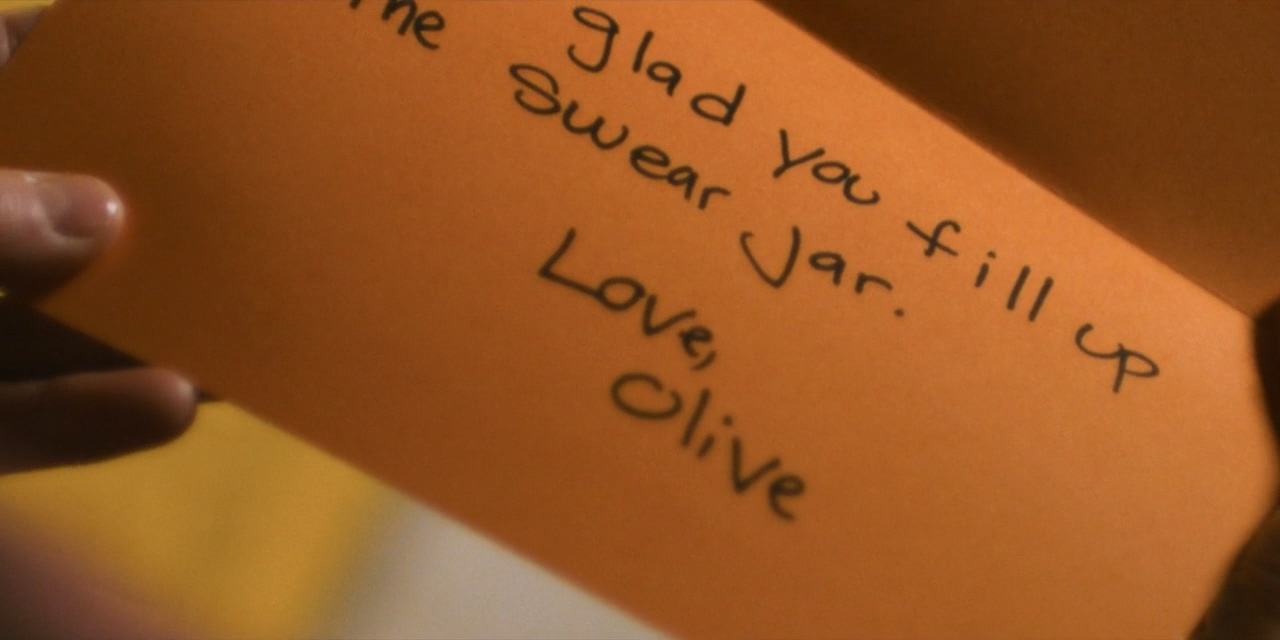 glad you fill up
the Swear Jar.
Love,
Olive